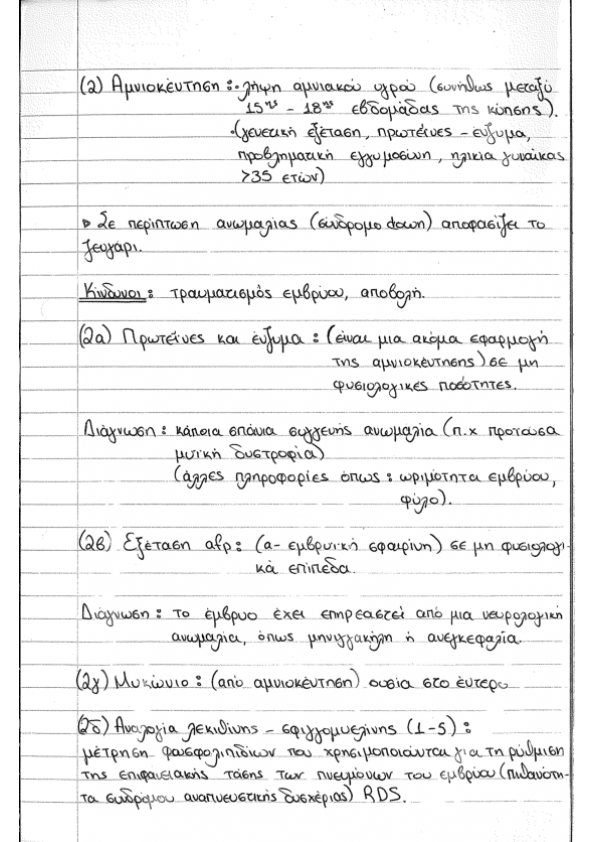 (2) Αμνιοκέντηση : · λήψη αμνιακού υγρού (συνήθως μεταξύ
15ης - 18ης εβδομάδας της κύησης).
·(γενετική εξέταση, πρωτεΐνες - ένζυμα,
προβληματική εγκυμοσύνη, ηλικία γυναίκας
>35 ετών)
▹ Σε περίπτωση ανωμαλίας (σύνδρομο down) αποφασίζει το
ζευγάρι.
Κίνδυνοι : τραυματισμός εμβρύου, αποβολή.
(2α) Πρωτεΐνες και ένζυμα : (είναι μια ακόμα εφαρμογή
της αμνιοκέντησης) σε μη
φυσιολογικές ποσότητες.
Διάγνωση : κάποια σπάνια συγγενής ανωμαλία (π.χ προϊούσα
μυϊκή δυστροφία)
(άλλες πληροφορίες όπως : ωριμότητα εμβρύου,
φύλο).
(2β) Εξέταση afp : (α- εμβρυϊκή σφαιρίνη) σε μη φυσιολογι-
κά επίπεδα.
Διάγνωση : το έμβρυο έχει επηρεαστεί από μια νευρολογική
ανωμαλία, όπως μηνιγγοκήλη ή ανεγκεφαλία.
(2γ) Μυκώνιο : (από αμνιοκέντηση) ουσία στο έντερο
(2δ) Αναλογία λεκιθίνης - σφιγγομυελίνης (1-5) :
μέτρηση φωσφολιπιδίων που χρησιμοποιούνται για τη ρύθμιση
της επιφανειακής τάσης των πνευμόνων του εμβρύου (πιθανότη-
τα συνδρόμου αναπνευστικής δυσχέριας) RDS.